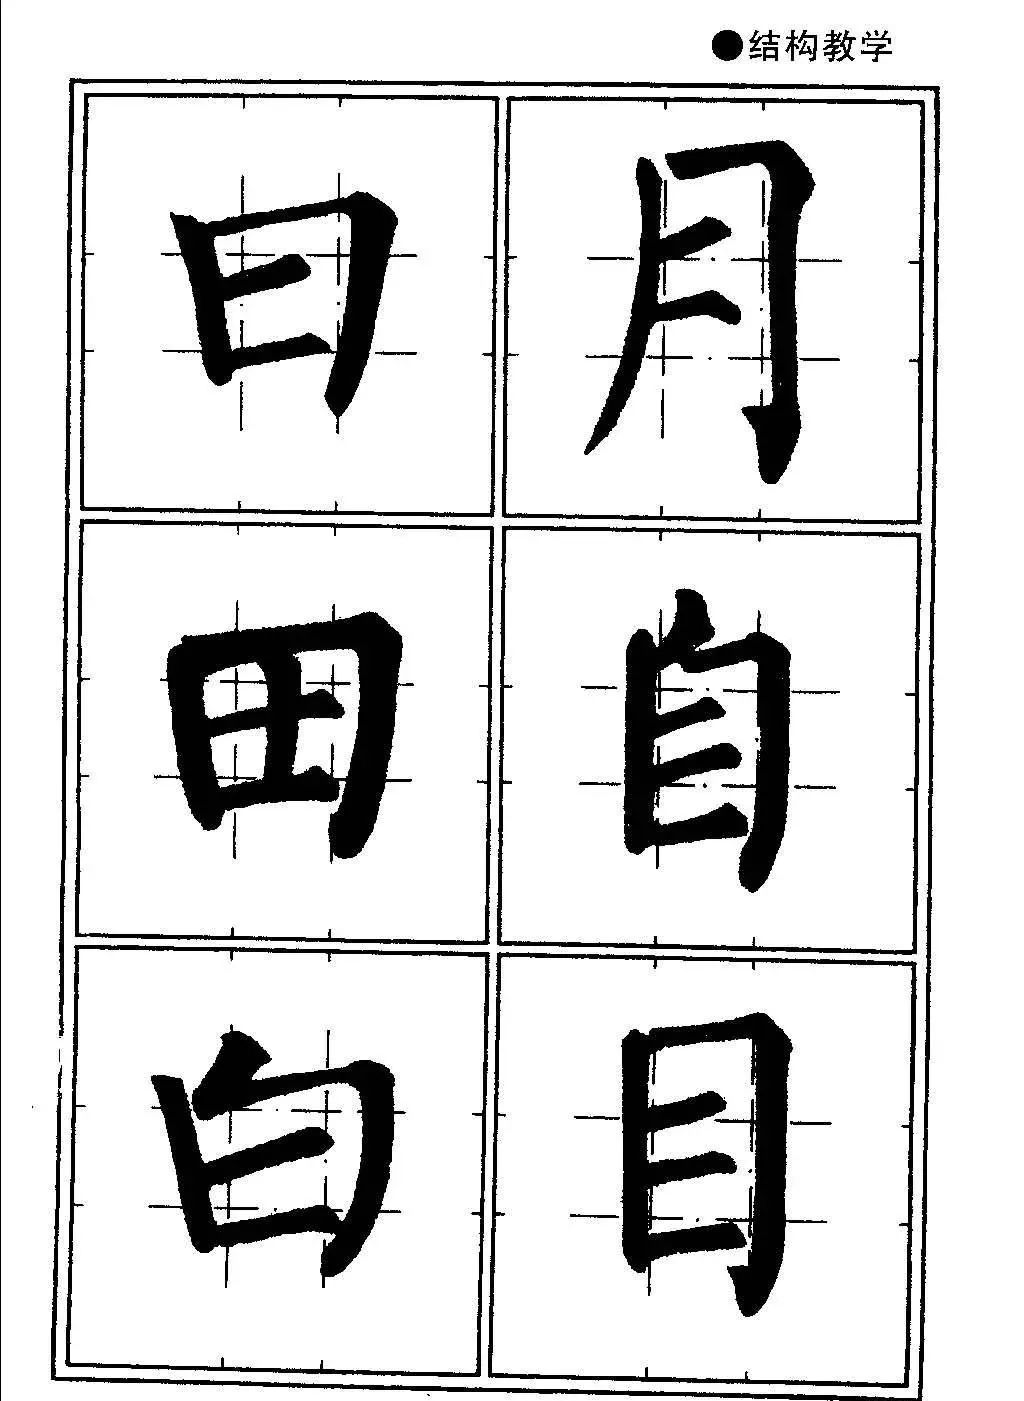 ●结构教学
日月
田自
白目